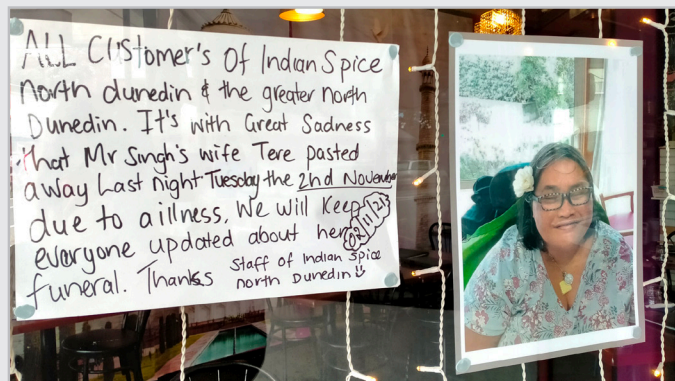 ALL Customer's Of Indian Spice
North dunedin & the greater north
Dunedin. It's with Great Sadness
that Mr Singh's wife Tere pasted
away Last night Tuesday the 2nd November
due to a illness. We will Keep
everyone updated about her 02/11/21
funeral. Thanks Staff of Indian Spice
north Dunedin